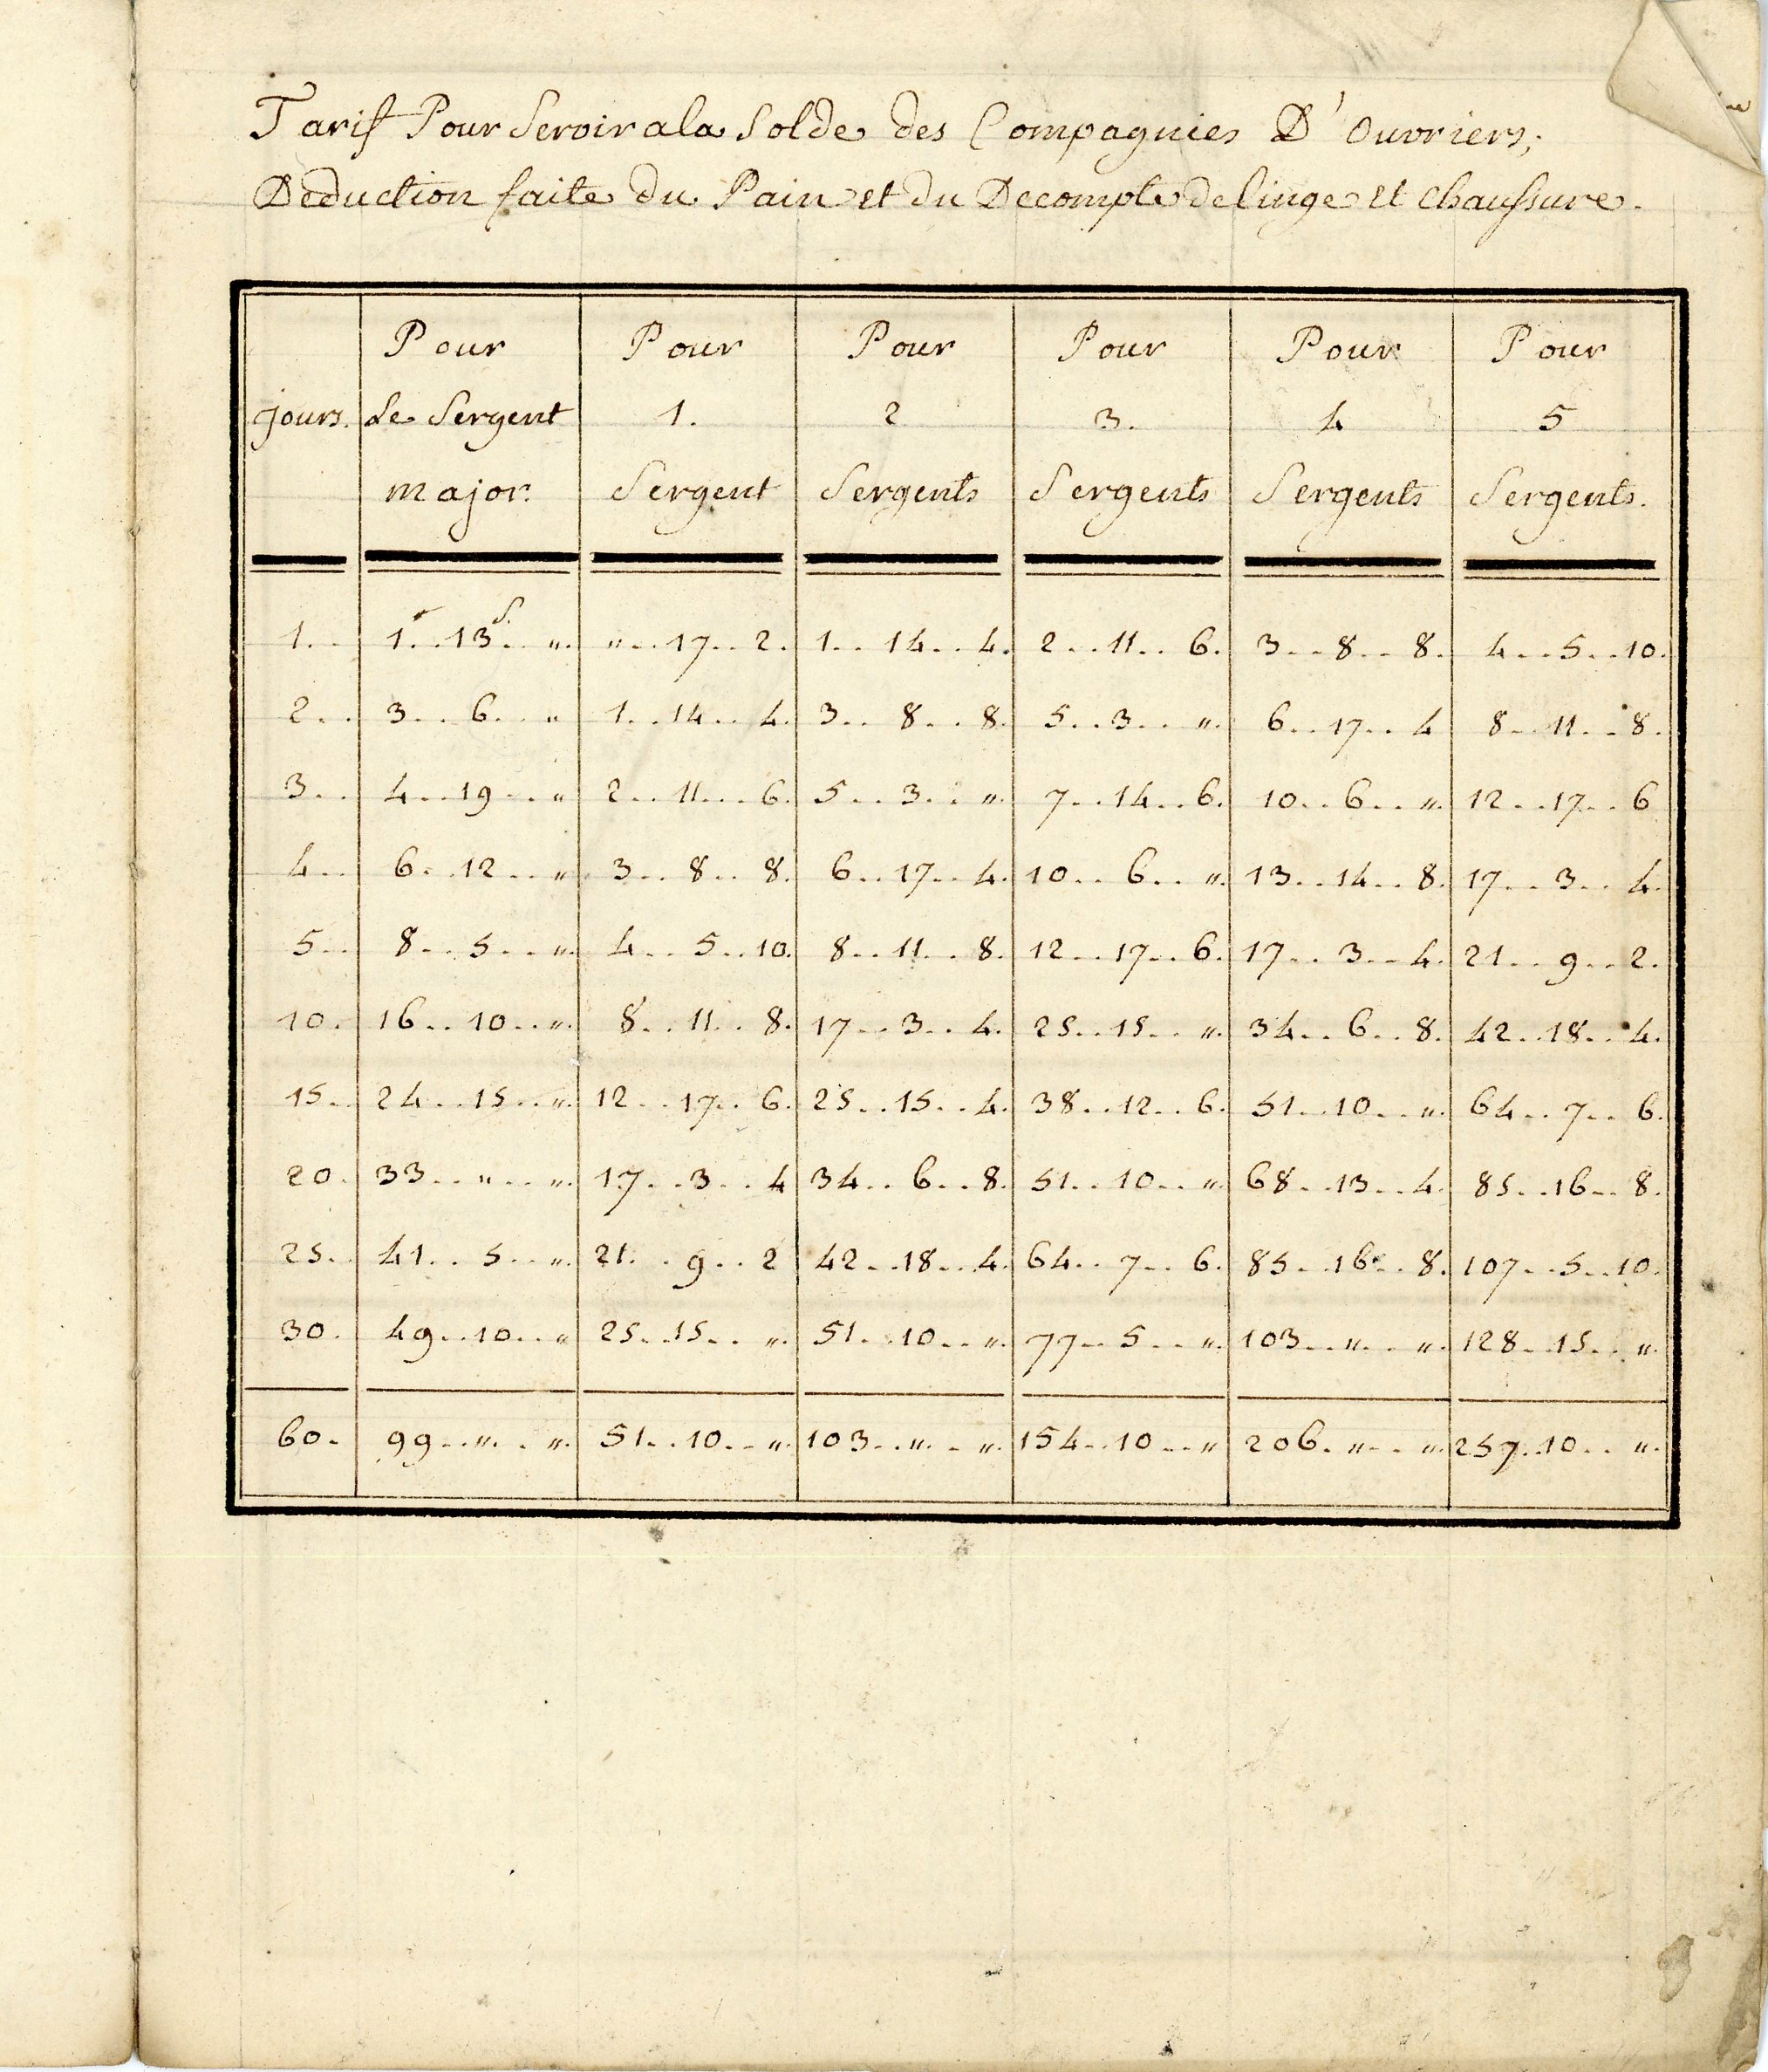 Tarif Pour Servir a la Solde des Compagnies D'Ouvriers;
Deduction faite du Pain et du Decompte de linge et Chaussure.
jours. | Pour Le Sergent major. | Pour 1. Sergent | Pour 2 Sergents | Pour 3. Sergents | Pour 4 Sergents | Pour 5 Sergents.
1... | 1tt..13s.. ". | "...17..2. | 1..14..4. | 2...11..6. | 3...8...8. | 4...5...10.
2... | 3...6... " | 1..14...4. | 3...8...8. | 5...3... ". | 6...17...4 | 8...11...8.
3... | 4...19... " | 2...11...6. | 5...3... ". | 7...14...6. | 10...6... ". | 12...17...6
4... | 6...12... " | 3...8...8. | 6...17...4. | 10...6... ". | 13...14...8. | 17...3...4.
5... | 8...5... ". | 4...5...10. | 8...11...8. | 12...17...6. | 17...3...4. | 21...9...2.
10. | 16...10... ". | 8...11...8. | 17...3...4. | 25...15... ". | 34...6...8. | 42...18...4.
15.. | 24...15... ". | 12...17...6. | 25...15...4. | 38...12...6. | 51...10... ". | 64...7...6.
20. | 33... "... ". | 17...3...4 | 34...6...8. | 51...10... ". | 68...13...4. | 85...16...8.
25.. | 41...5... ". | 21...9...2 | 42...18...4. | 64...7...6. | 85...16...8. | 107...5...10.
30. | 49...10... " | 25...15... ". | 51...10... ". | 77...5... ". | 103... "... ". | 128...15... ".
60. | 99... "... ". | 51...10... ". | 103... "... ". | 154...10... " | 206. "... ". | 257..10... ".